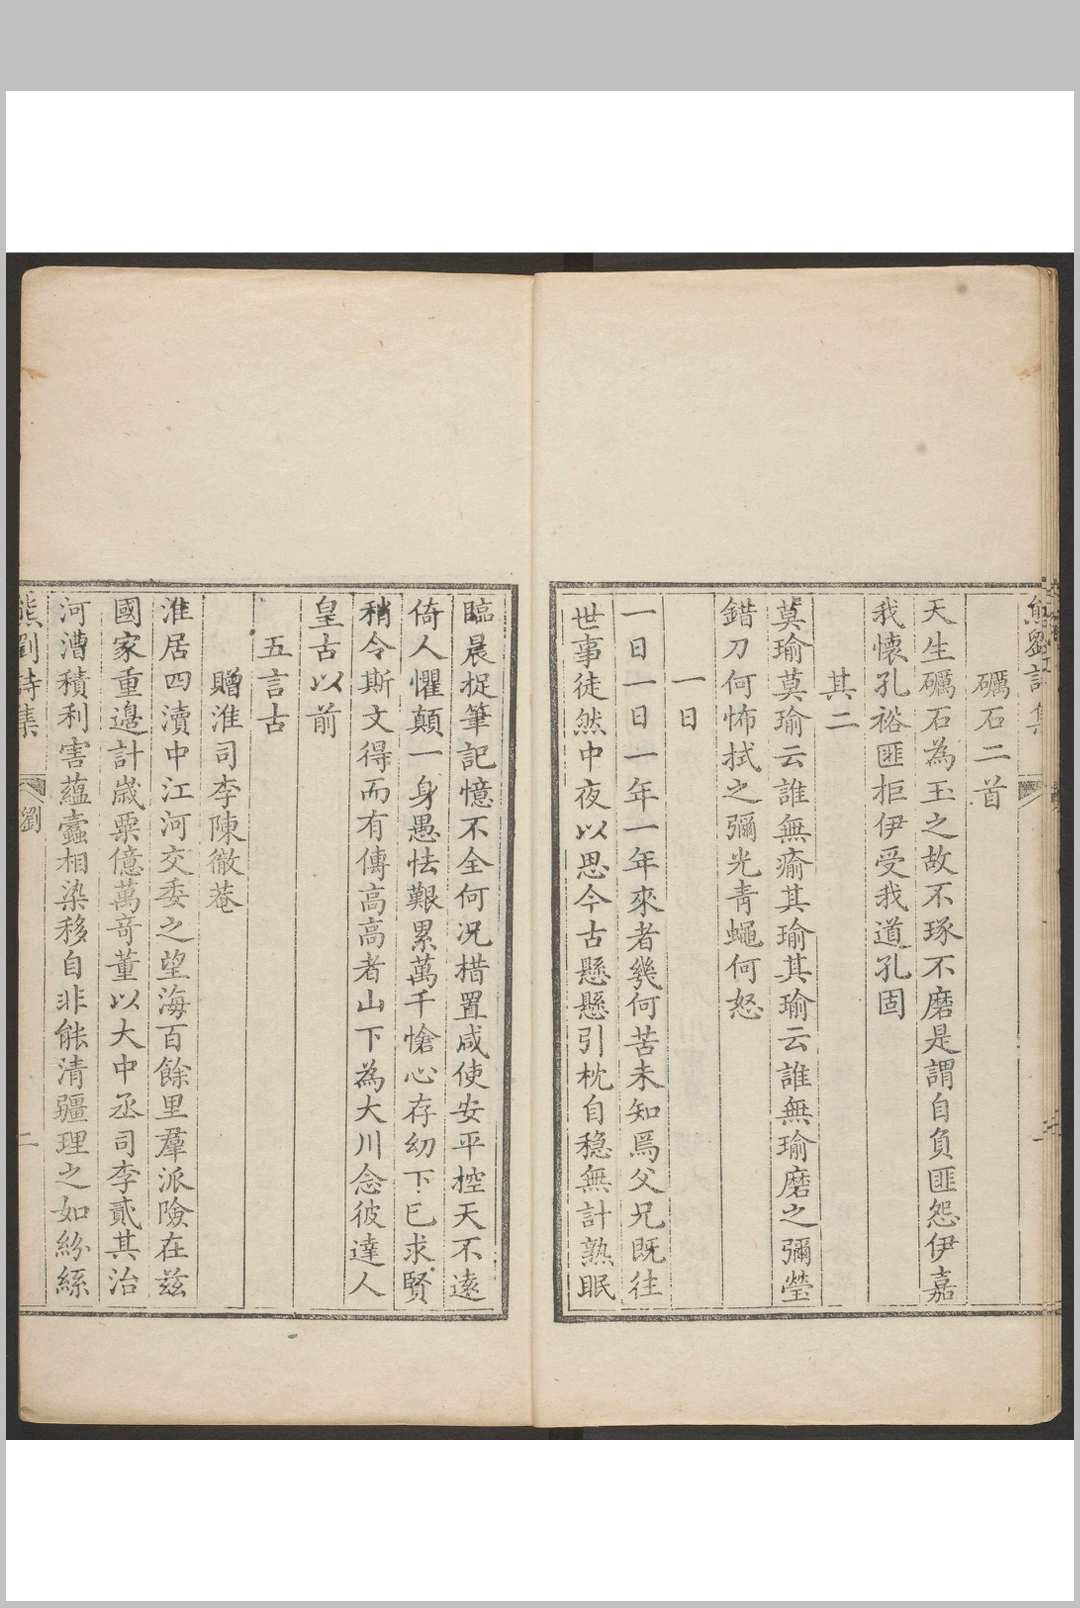 熊劉詩集
礪石二首
天生礪石為玉之故不琢不磨是謂自負匪怨伊嘉
我懷孔裕匪拒伊受我道孔固
其二
莫瑜莫瑜云誰無瘉其瑜其瑜云誰無瑜磨之彌瑩
錯刀何怖拭之彌光青蠅何怒
一日
一日一日一年一年來者幾何苦未知焉父兄既往
世事徒然中夜以思今古懸懸引枕自穏無計熟眠
臨晨捉筆記憶不全何况措置咸使安平控天不遠
倚人懼顛一身愚怯艱累萬千愴心存幼下已求賢
稍令斯文得而有傳高高者山下為大川念彼達人
皇古以前
五言古
贈淮司李陳徹菴
淮居四瀆中江河交委之望海百餘里羣派險在茲
國家重邊計歲粟億萬竒董以大中丞司李貳其治
河漕積利害蘊蠹相染移自非能清疆理之如紛絲
熊劉詩集
劉
二